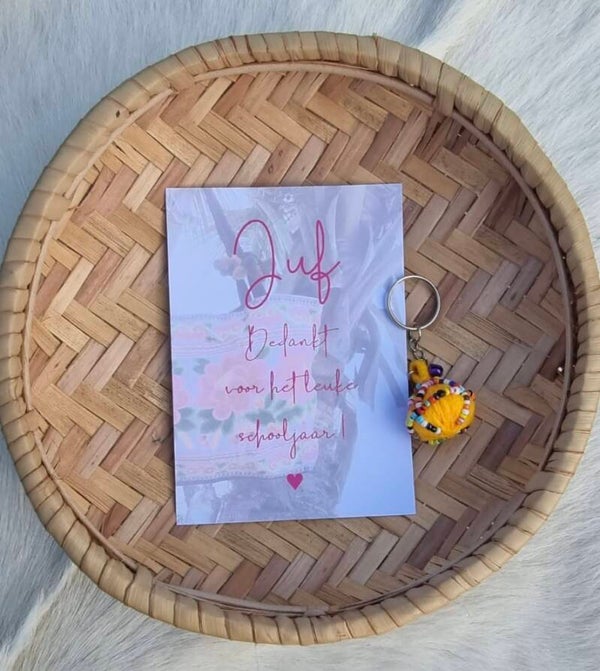 Juf
Bedankt
voor het leuke
schooljaar!